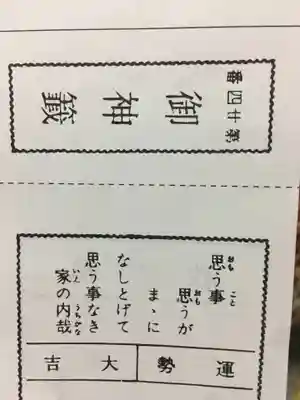 第廿四番
御神籤
思う事
思うが
まゝに
なしとげて
思う事なき
家の内哉
運勢
大吉